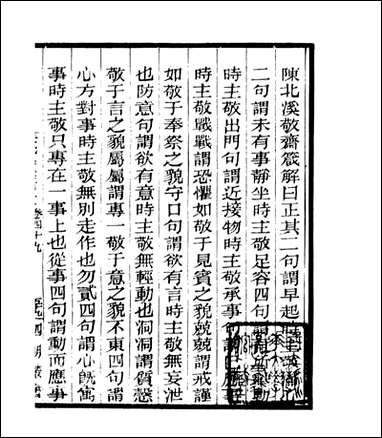 陳北溪敬齋箴解曰正其二句謂早起
二句謂未有事靜坐時主敬足容四句謂
時主敬出門句謂近接物時主敬承事句
時主敬戰戰謂恐懼如敬于見賓之貌兢兢謂戒謹
如敬于奉祭之貌守口句謂欲有言時主敬無妄泄
也防意句謂欲有意時主敬無輕動也洞洞謂質慤
敬于言之貌屬屬謂專一敬于意之貌不東四句謂
心方對事時主敬無別走作也勿貳四句謂心旣寓
事時主敬只專在一事上也從事四句謂動而應事
卷四十九
四明叢書